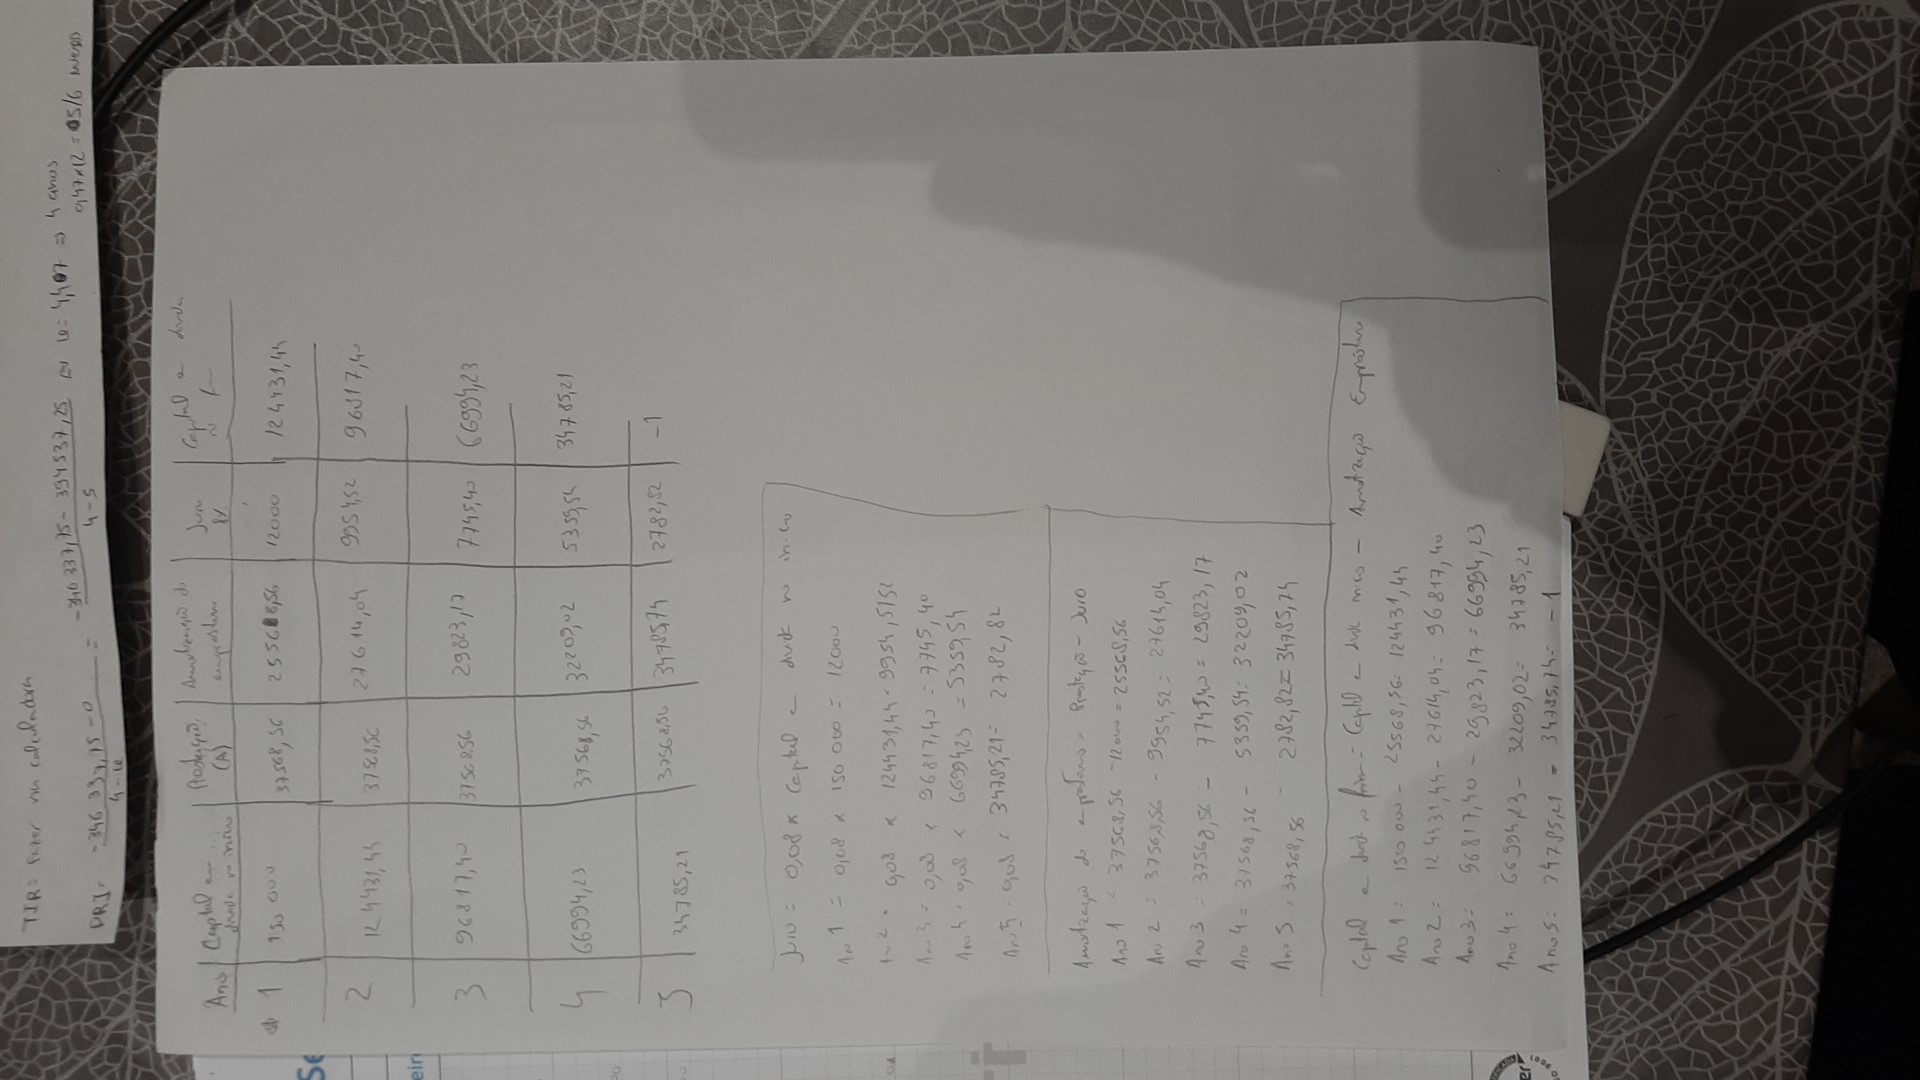 TIR: Fazer na calculadora
PRI = -346 337,75 - 0 / 4 - u = -346 337,75 - 394537,25 / 4 - 5 u = 4,407 => 4 anos
0,47x12 = 05/6 meses
Ano | Capital em divida no inicio | Prestação (A) | Amortização do empréstimo | Juro 8% | Capital em divida no fim
1 | 150 000 | 37568,56 | 25568,56 | 12000 | 124431,44
2 | 124431,44 | 37568,56 | 27614,04 | 9954,52 | 96817,40
3 | 96817,40 | 37568,56 | 29823,17 | 7745,40 | 66994,23
4 | 66994,23 | 37568,56 | 32209,02 | 5359,54 | 34785,21
5 | 34785,21 | 37568,56 | 34785,74 | 2782,82 | -1
Juro = 0,08 x Capital em divida no inicio
Ano 1 = 0,08 x 150 000 = 12000
Ano 2 = 0,08 x 124431,44 = 9954,5152
Ano 3 = 0,08 x 96817,40 = 7745,40
Ano 4 = 0,08 x 66994,23 = 5359,54
Ano 5 = 0,08 x 34785,21 = 2782,82
Amortização do empréstimo = Prestação - Juro
Ano 1 = 37568,56 - 12000 = 25568,56
Ano 2 = 37568,56 - 9954,52 = 27614,04
Ano 3 = 37568,56 - 7745,40 = 29823,17
Ano 4 = 37568,56 - 5359,54 = 32209,02
Ano 5 = 37568,56 - 2782,82 = 34785,74
Capital em divida no fim = Capital em divida inicio - Amortização Empréstimo
Ano 1 = 150 000 - 25568,56 = 124431,44
Ano 2 = 124431,44 - 27614,04 = 96817,40
Ano 3 = 96817,40 - 29823,17 = 66994,23
Ano 4 = 66994,23 - 32209,02 = 34785,21
Ano 5 = 34785,21 - 34785,74 = -1